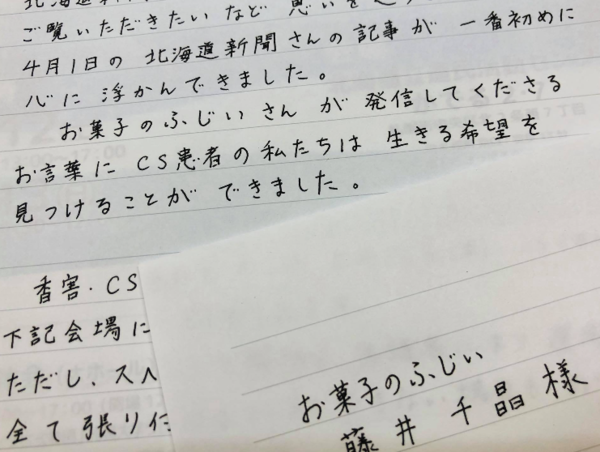 ご覧いただきたい など 思いを
4月1日の 北海道新聞さんの記事が 一番初めに
心に 浮かんできました。
お菓子のふじい さん が 発信してくださる
お言葉に CS患者の私たちは 生きる希望を
見つけることが できました。
香害・CS
下記会場に
ただし、スペ
全て張り付
お菓子のふじい
藤井 千晶 様